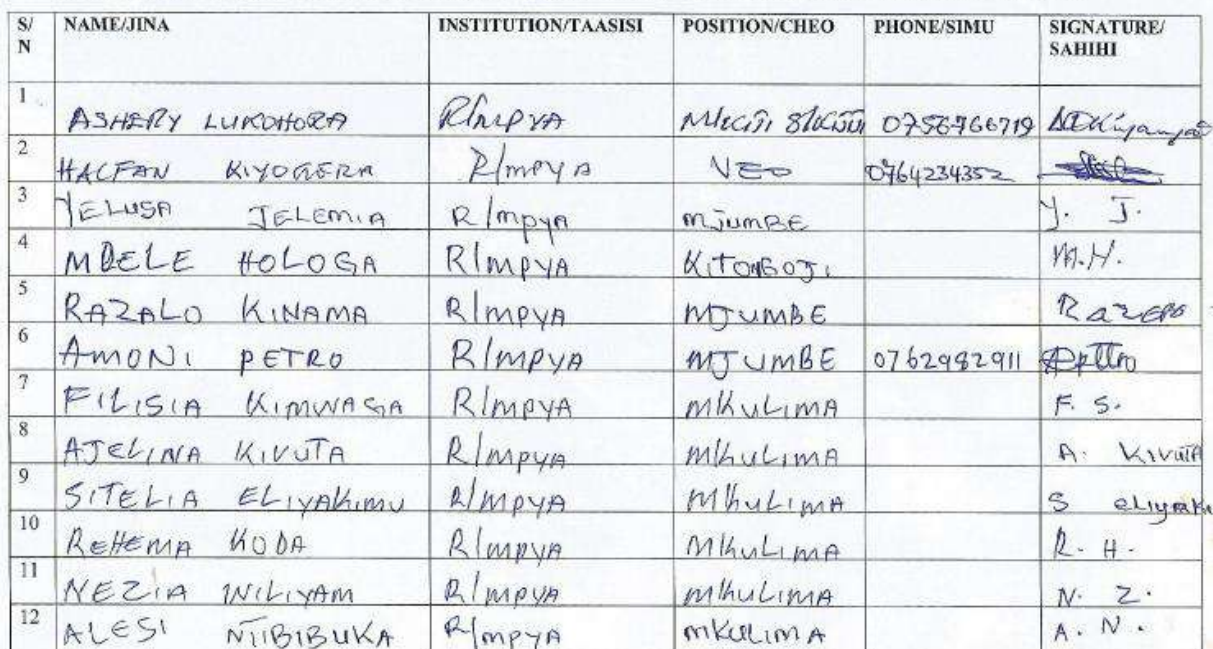 S/N NAME/JINA INSTITUTION/TAASISI POSITION/CHEO PHONE/SIMU SIGNATURE/SAHIHI
1 ASHERY LUKOHORA R/MPYA 0756766719
2 HALFAN KIYOGERA R/mpya VEO 0764234352
3 YELUSA JELEMIA R/mpya mJumBE Y. J.
4 MDELE HOLOGA R/mpya KITONGOJI M.H.
5 RAZALO KINAMA R/mpya MJUMBE
6 AMONI PETRO R/mpya MJUMBE 0762982911
7 FILISIA KIMWAGA R/mpya mkulima F. S.
8 AJELINA KIVUTA R/mpya mkulima A. KIVUTA
9 SITELIA ELIYAKIMU R/mpya mkulima S
10 REHEMA KODA R/mpya mkulima R. H.
11 NEZIA WILIYAM R/mpya mkulima N. Z.
12 ALESI NTIBIBUKA R/mpya mkulima A. N.